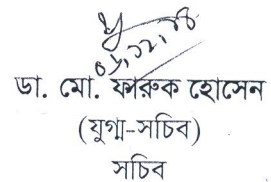 ডা. মো. ফারুক হোসেন
(যুগ্ম-সচিব)
সচিব